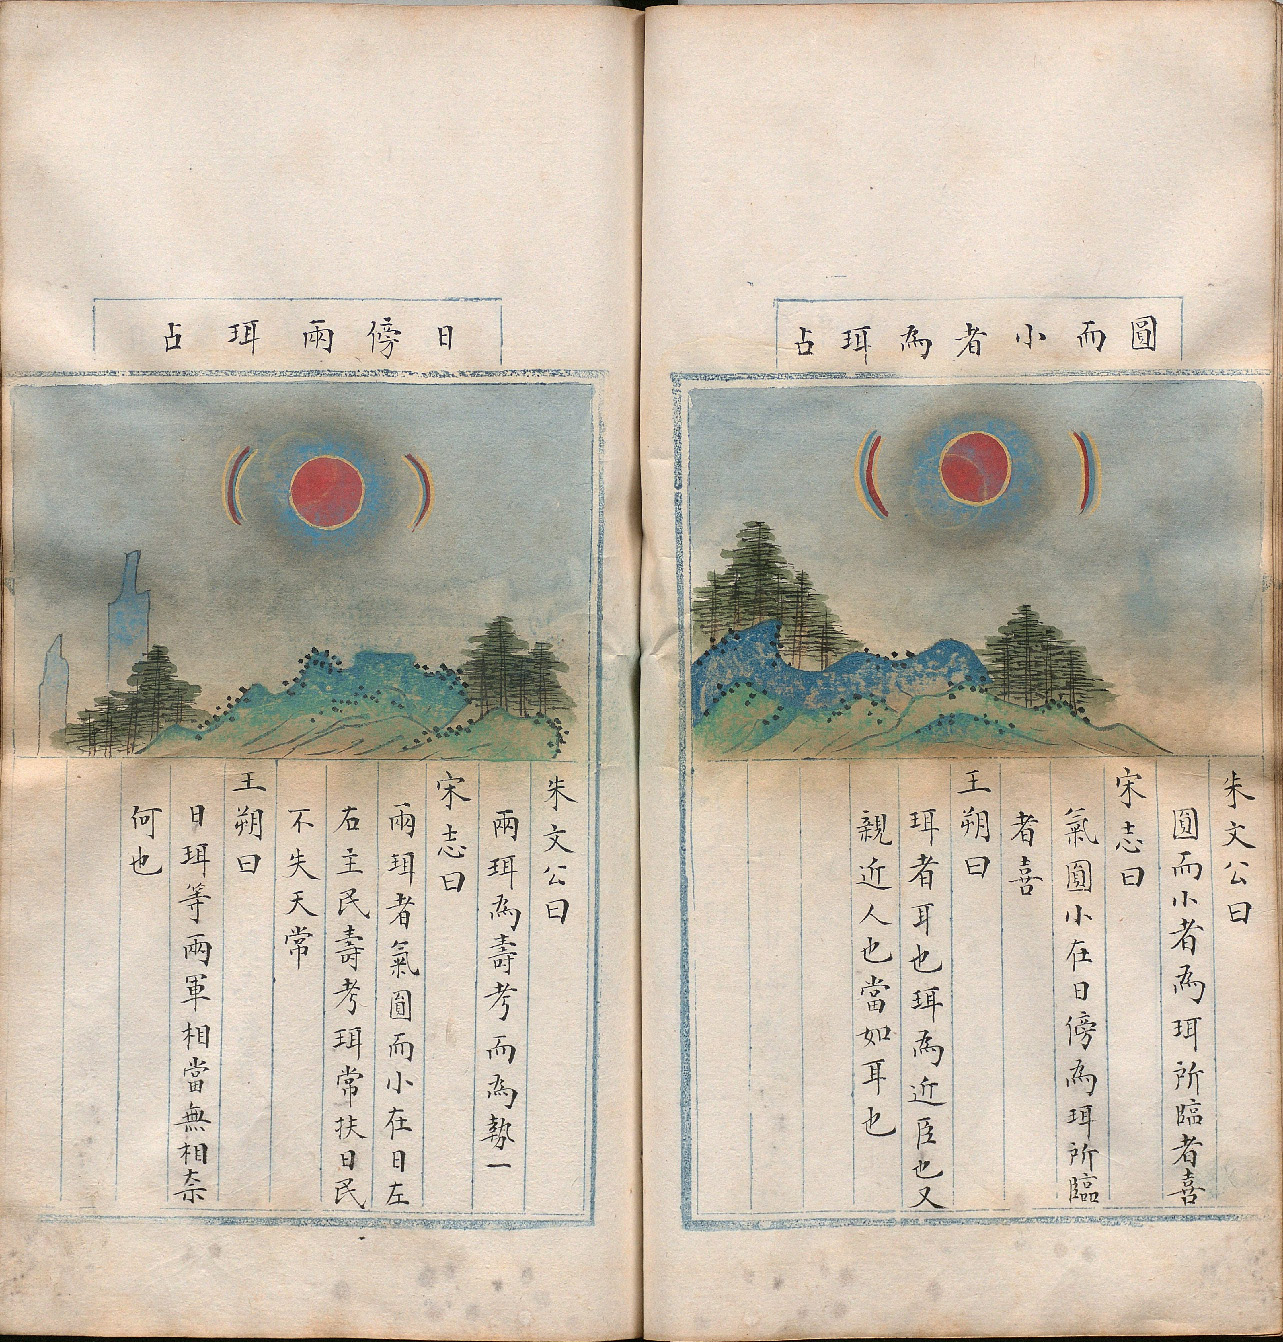 圓而小者為珥占
朱文公曰
圓而小者為珥所臨者喜
宋志曰
氣圓小在日傍為珥所臨
者喜
王朔曰
珥者耳也珥為近臣也又
親近人也當如耳也
日傍兩珥占
朱文公曰
兩珥為壽考而為勢一
宋志曰
兩珥者氣圓而小在日左
右主民壽考珥常扶日民
不失天常
王朔曰
日珥等兩軍相當無相奈
何也